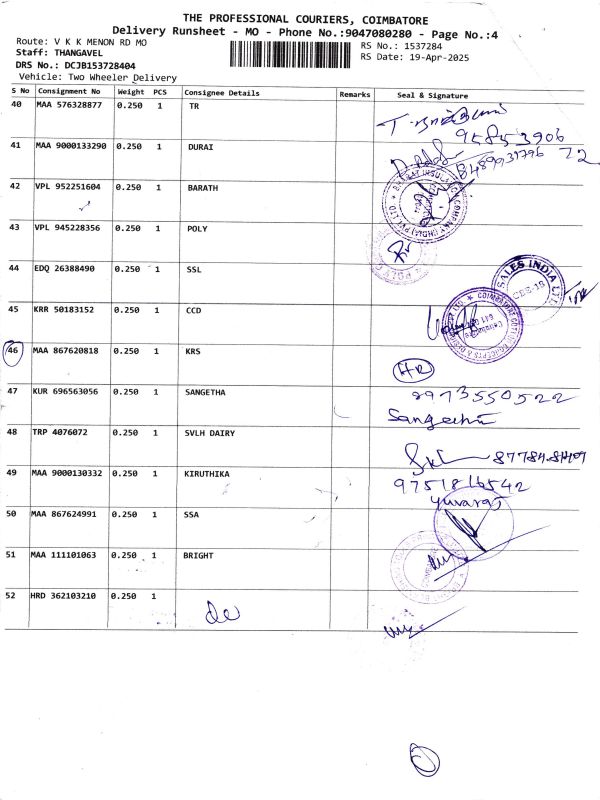 THE PROFESSIONAL COURIERS, COIMBATORE
Delivery Runsheet - MO - Phone No.:9047080280 - Page No.:4
Route: V K K MENON RD MO
RS No.: 1537284
Staff: THANGAVEL
RS Date: 19-Apr-2025
DRS No.: DCJB153728404
Vehicle: Two Wheeler Delivery
S No Consignment No Weight PCS Consignee Details Remarks Seal & Signature
40 MAA 576328877 0.250 1 TR
95853906
72
41 MAA 9000133290 0.250 1 DURAI
8489931796
42 VPL 952251604 0.250 1 BARATH
43 VPL 945228356 0.250 1 POLY
44 EDQ 26388490 0.250 1 SSL
SALES INDIA LTD.
CBE-18
45 KRR 50183152 0.250 1 CCD
46 MAA 867620818 0.250 1 KRS
HR
47 KUR 696563056 0.250 1 SANGETHA
8973550522
Sangeetha
48 TRP 4076072 0.250 1 SVLH DAIRY
49 MAA 9000130332 0.250 1 KIRUTHIKA
9751816542
Yuvaraj
50 MAA 867624991 0.250 1 SSA
51 MAA 111101063 0.250 1 BRIGHT
52 HRD 362103210 0.250 1
de